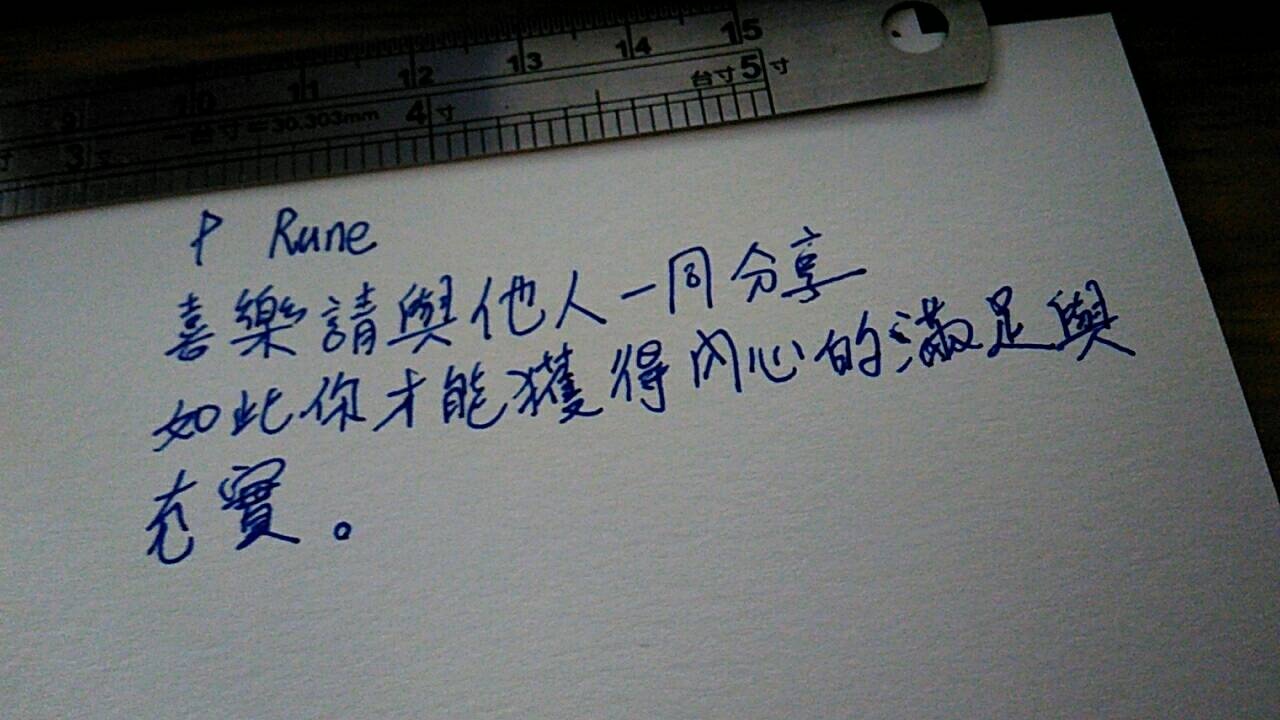 9 10 11 12 13 14 15
寸 3 寸 一台寸=30.303mm 4 寸 台寸 5 寸
ᚹ Rune
喜樂請與他人一同分享
如此你才能獲得內心的滿足與
充實。